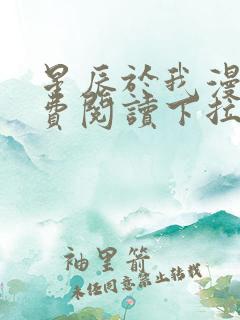 星辰於我漫
費閱讀下拉
袖里箭
未任同意禁止转载